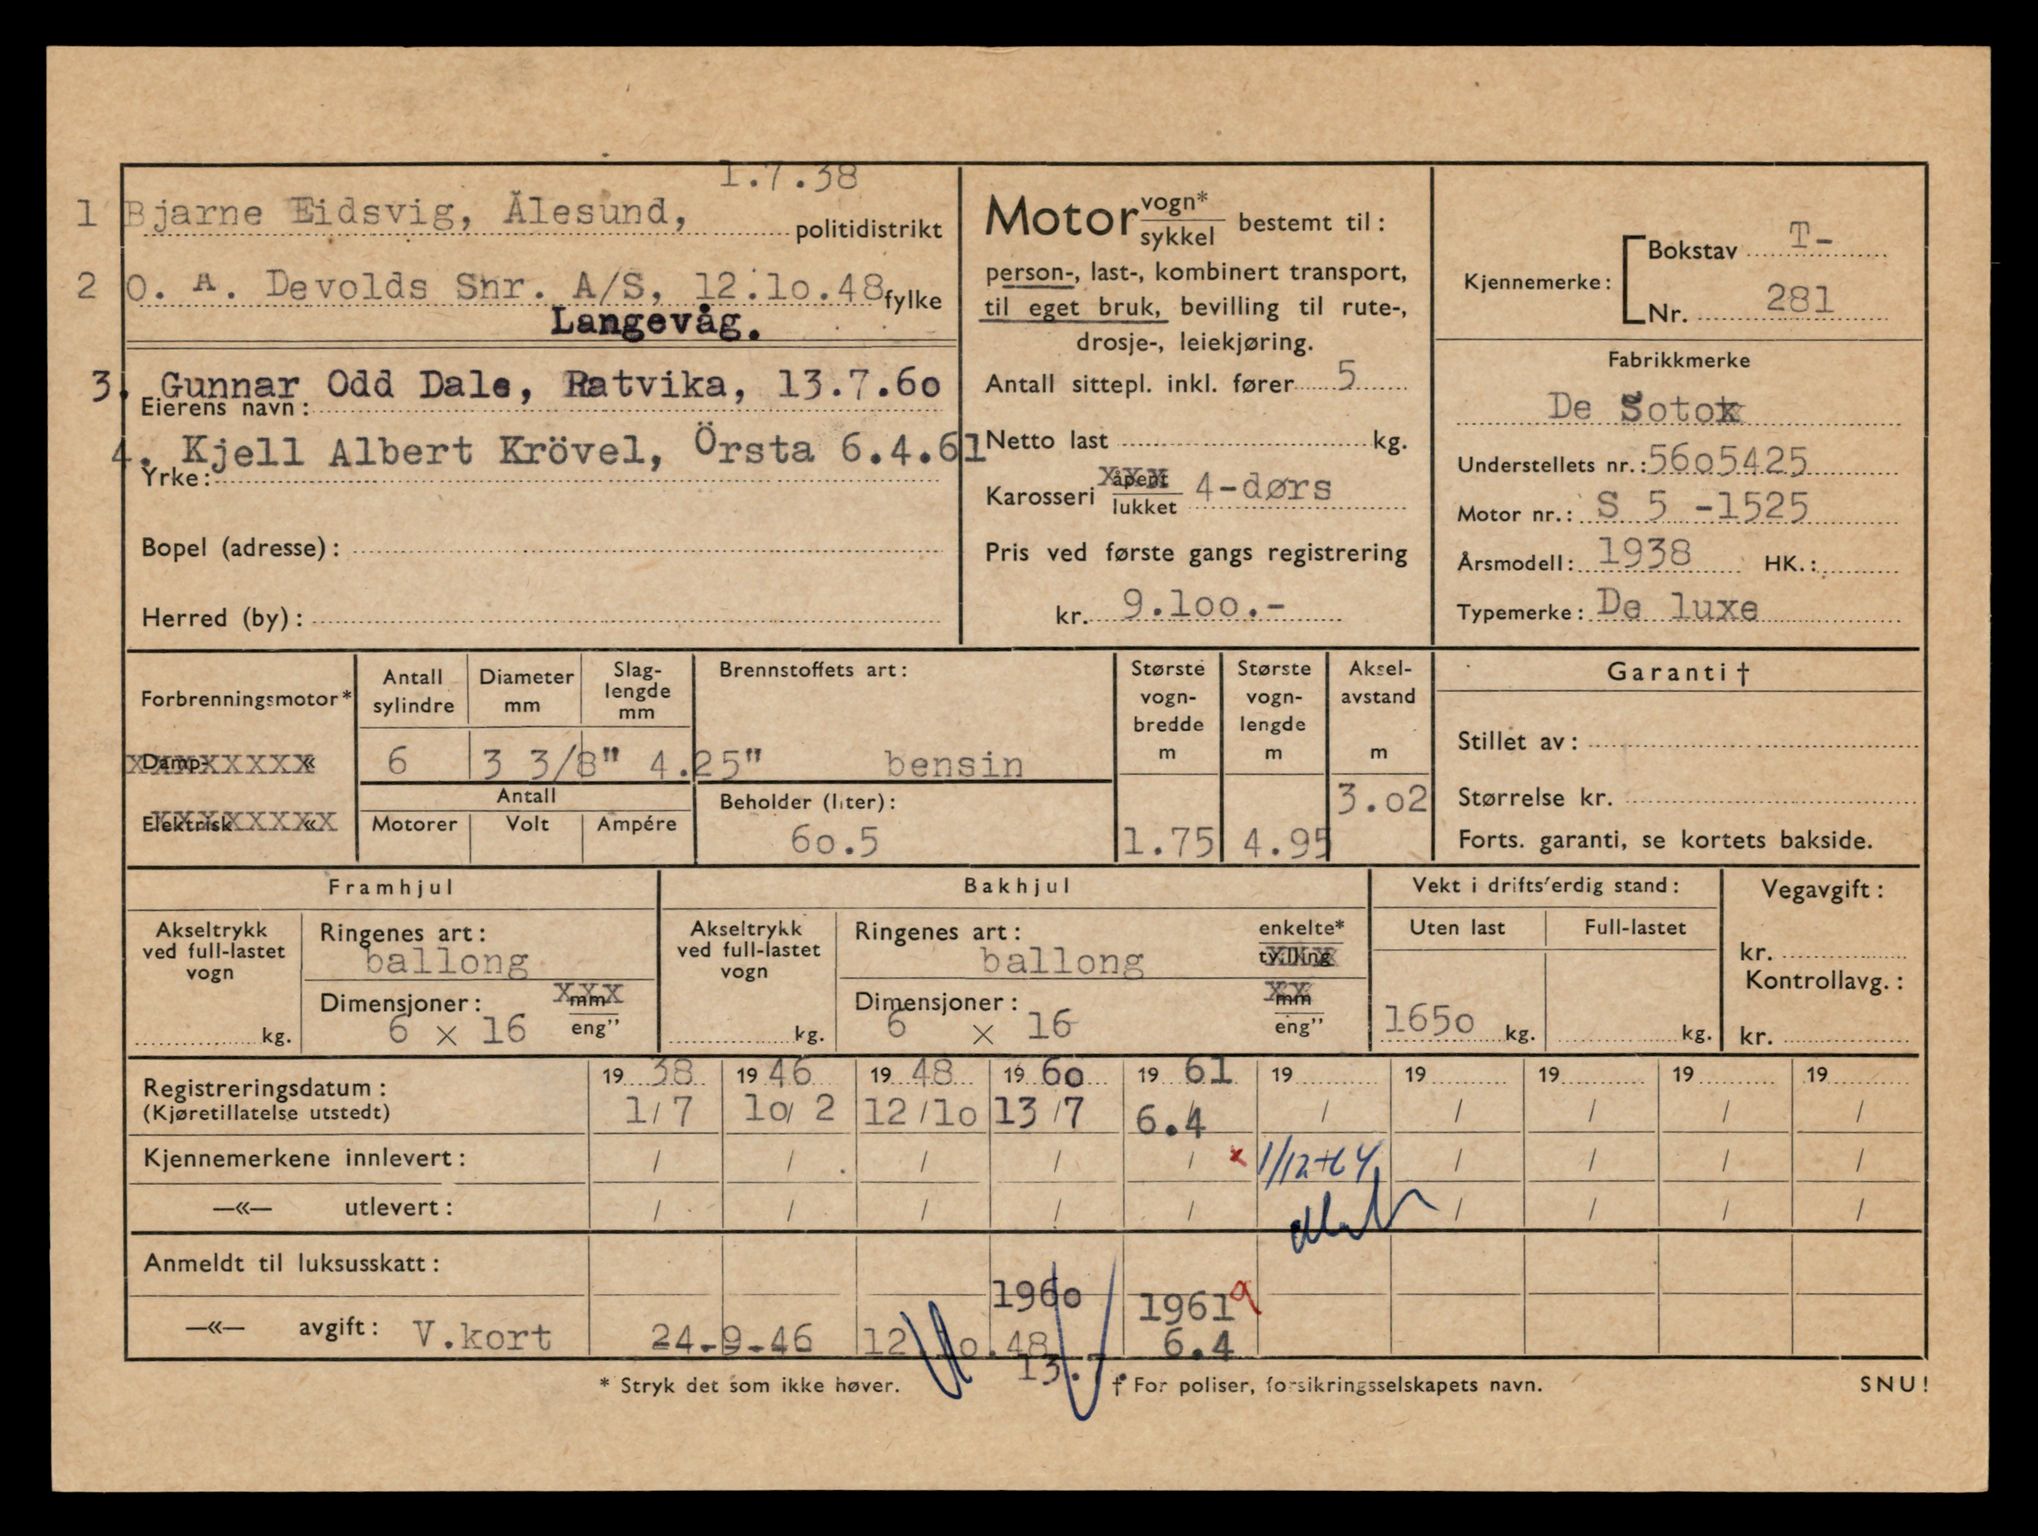 1.7.38
1 Bjarne Eidsvig, Ålesund, politidistrikt
2 O. A. Devolds Snr. A/S, 12.lo.48 fylke
Langevåg.
3. Gunnar Odd Dale, Ratvika, 13.7.6o
Eierens navn:
4. Kjell Albert Krövel, Örsta 6.4.61
Yrke:
Bopel (adresse):
Herred (by):
Motor vogn* / sykkel bestemt til:
person-, last-, kombinert transport,
til eget bruk, bevilling til rute-,
drosje-, leiekjøring.
Antall sittepl. inkl. fører 5
Netto last kg.
Karosseri åpent / lukket 4-dørs
Pris ved første gangs registrering
kr. 9.loo.-
Kjennemerke: Bokstav T-
Nr. 281
Fabrikkmerke
De Sotox
Understellets nr.: 56o5425
Motor nr.: S 5 -1525
Årsmodell: 1938 HK.:
Typemerke: De luxe
Forbrenningsmotor*
Damp- «
Elektrisk «
Antall sylindre
6
Diameter mm
3 3/8"
Slag-lengde mm
4.25"
Antall
Motorer Volt Ampére
Brennstoffets art:
bensin
Beholder (liter):
6o.5
Største vogn-bredde m
1.75
Største vogn-lengde m
4.95
Aksel-avstand m
3.o2
Garanti †
Stillet av:
Størrelse kr.
Forts. garanti, se kortets bakside.
Framhjul
Akseltrykk ved full-lastet vogn
kg.
Ringenes art:
ballong
Dimensjoner: mm / eng"
6 x 16
Bakhjul
Akseltrykk ved full-lastet vogn
kg.
Ringenes art: enkelte* / tvilling
ballong
Dimensjoner: mm / eng"
6 x 16
Vekt i driftsferdig stand:
Uten last Full-lastet
165o kg. kg.
Vegavgift:
kr.
Kontrollavg.:
kr.
Registreringsdatum: 19 38 19 46 19 48 19 6o 19 61 19 19 19 19 19
(Kjøretillatelse utstedt) 1/7 lo/ 2 12/lo 13/7 6.4 / / / / /
Kjennemerkene innlevert: / / / / / x 1/12-64 / / / /
—«— utlevert: / / / / / / / / /
Anmeldt til luksusskatt:
196o 1961
—«— avgift: V.kort 24-9-46 12.lo.48 6.4
13.7.
* Stryk det som ikke høver. † For poliser, forsikringsselskapets navn. SNU!